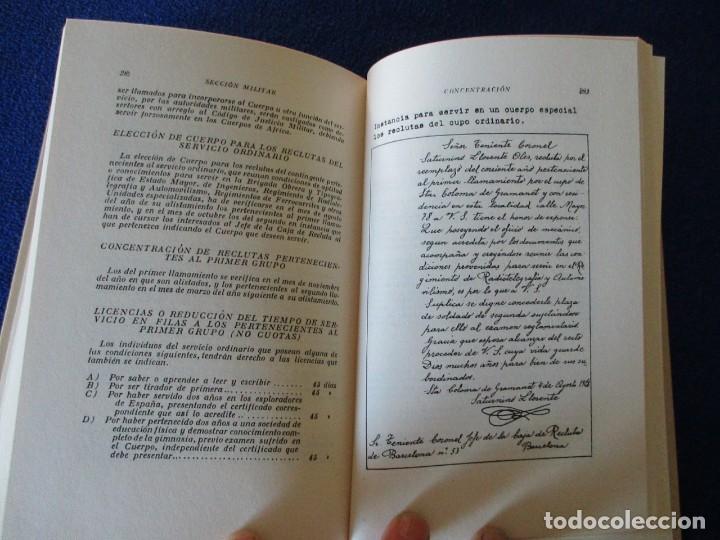 SECCIÓN MILITAR
ser llamados para incorporarse al Cuerpo u otra función del ser-
vicio, por las autoridades militares, serán castigados como de-
sertores con arreglo al Código de Justicia Militar, debiendo
servir forzosamente en los Cuerpos de Africa.
ELECCIÓN DE CUERPO PARA LOS RECLUTAS DEL
SERVICIO ORDINARIO
La elección de Cuerpo para los reclutas del contingente perte-
neciente al servicio ordinario, que reunan condiciones de aptitud
o conocimientos para servir en la Brigada Obrera y Topográ-
fica de Estado Mayor, de Ingenieros, Regimiento de Radiote-
legrafía y Automovilismo, Regimientos de Ferrocarriles y otras
Unidades especializadas, ha de verificarse en el mes de agosto
del año de su alistamiento los pertenecientes al primer llama-
miento, y en el mes de octubre los del segundo en instancia que
han de cursar los interesados al Jefe de la Caja de Recluta al
que pertenezca indicando el Cuerpo que deseen servir.
CONCENTRACIÓN DE RECLUTAS PERTENECIEN-
TES AL PRIMER GRUPO
Los del primer llamamiento se verifica en el mes de noviembre
del año en que son alistados, y los pertenecientes al segundo lla-
mamiento en el mes de marzo del año siguiente a su alistamiento.
LICENCIAS O REDUCCIÓN DEL TIEMPO DE SER-
VICIO EN FILAS A LOS PERTENECIENTES AL
PRIMER GRUPO (NO CUOTAS)
Los individuos del servicio ordinario que posean alguna de
las condiciones siguientes, tendrán derecho a las licencias que
también se indican.
A) Por saber o aprender a leer y escribir 45 días
B) Por ser tirador de primera 45 »
C) Por haber servido dos años en los exploradores
de España, presentando el certificado corres-
pondiente que así lo acredite 45 »
D) Por haber pertenecido dos años a una sociedad de
educación física y demostrar conocimiento com-
pleto de la gimnasia, previo examen sufrido en
el Cuerpo, independiente del certificado que
debe presentar 45 »
CONCENTRACIÓN
Instancia para servir en un cuerpo especial
los reclutas del cupo ordinario.
Señor Teniente Coronel
Saturnino Llorente Oles, recluta por el
reemplazo del corriente año perteneciente
al primer llamamiento por el cupo de
Sta Coloma de Gramanet y con resi-
dencia en esta localidad calle Mayor
78 a V. S. tiene el honor de exponer:
Que poseyendo el oficio de mecánico,
segun acredita por los documentos que
acompaña y creyéndose reunir las con-
diciones prevenidas para servir en el Re
gimiento de Radiotelegrafia y Auto
vilismo, es por lo que a V. S.
Suplica se digne concederle plaza
de soldado de segunda sujetándose
para ello al examen reglamentario
Gracia que espera alcanzar del recto
proceder de V. S. cuya vida guarde
Dios muchos años para bien de sus su
bordinados.
Sta Coloma de Gramanet 4 de Agosto
Saturnino Llorente
Sr. Teniente Coronel Jefe de la Caja de Recluta
de Barcelona nº 53 Barcelona
todocoleccion